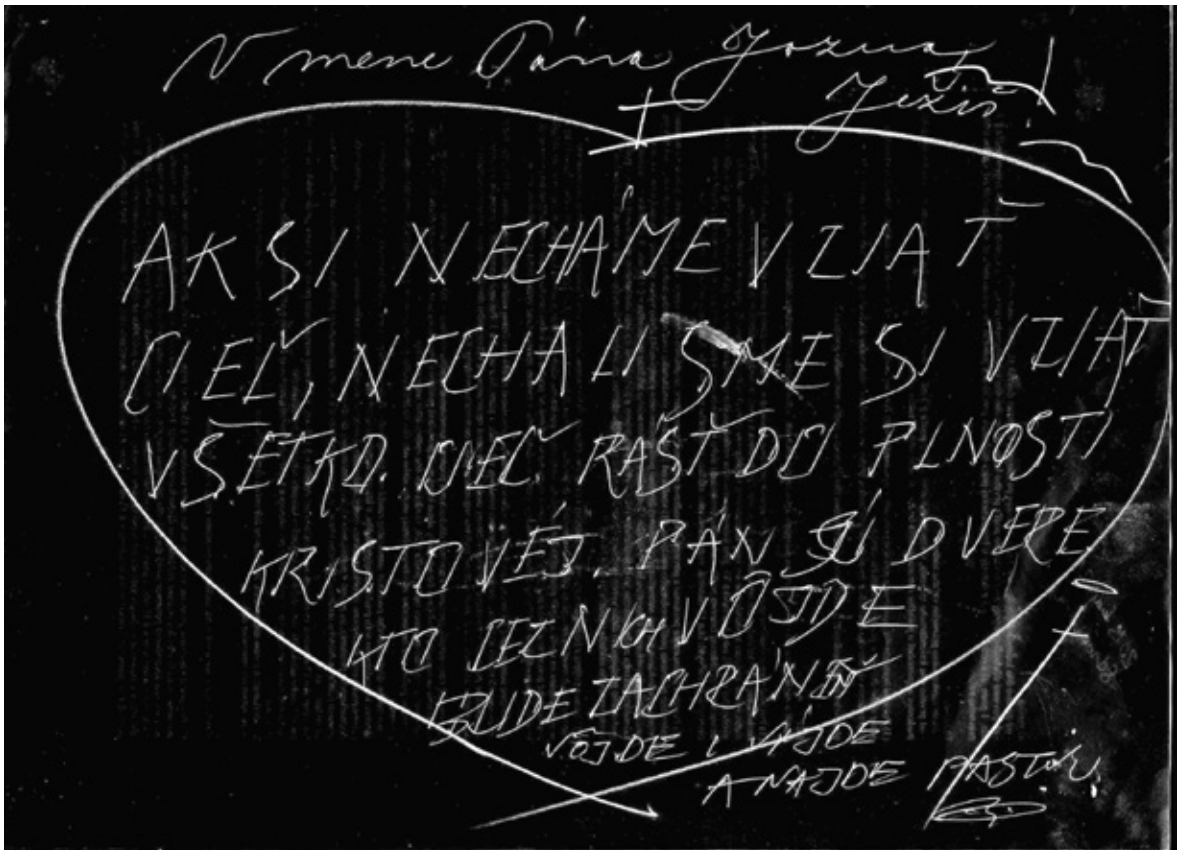 V mene Pána Jozua,
Ježiš
AK SI NECHÁME VZIAŤ
CIEĽ, NECHALI SME SI VZIAŤ
VŠETKO. CIEĽ RÁSŤ DO PLNOSTI
KRISTOVEJ. PÁN SÚ DVERE
KTO CEZ NICH VOJDE
BUDE ZACHRÁNENÝ
VOJDE I VÝJDE
A NAJDE